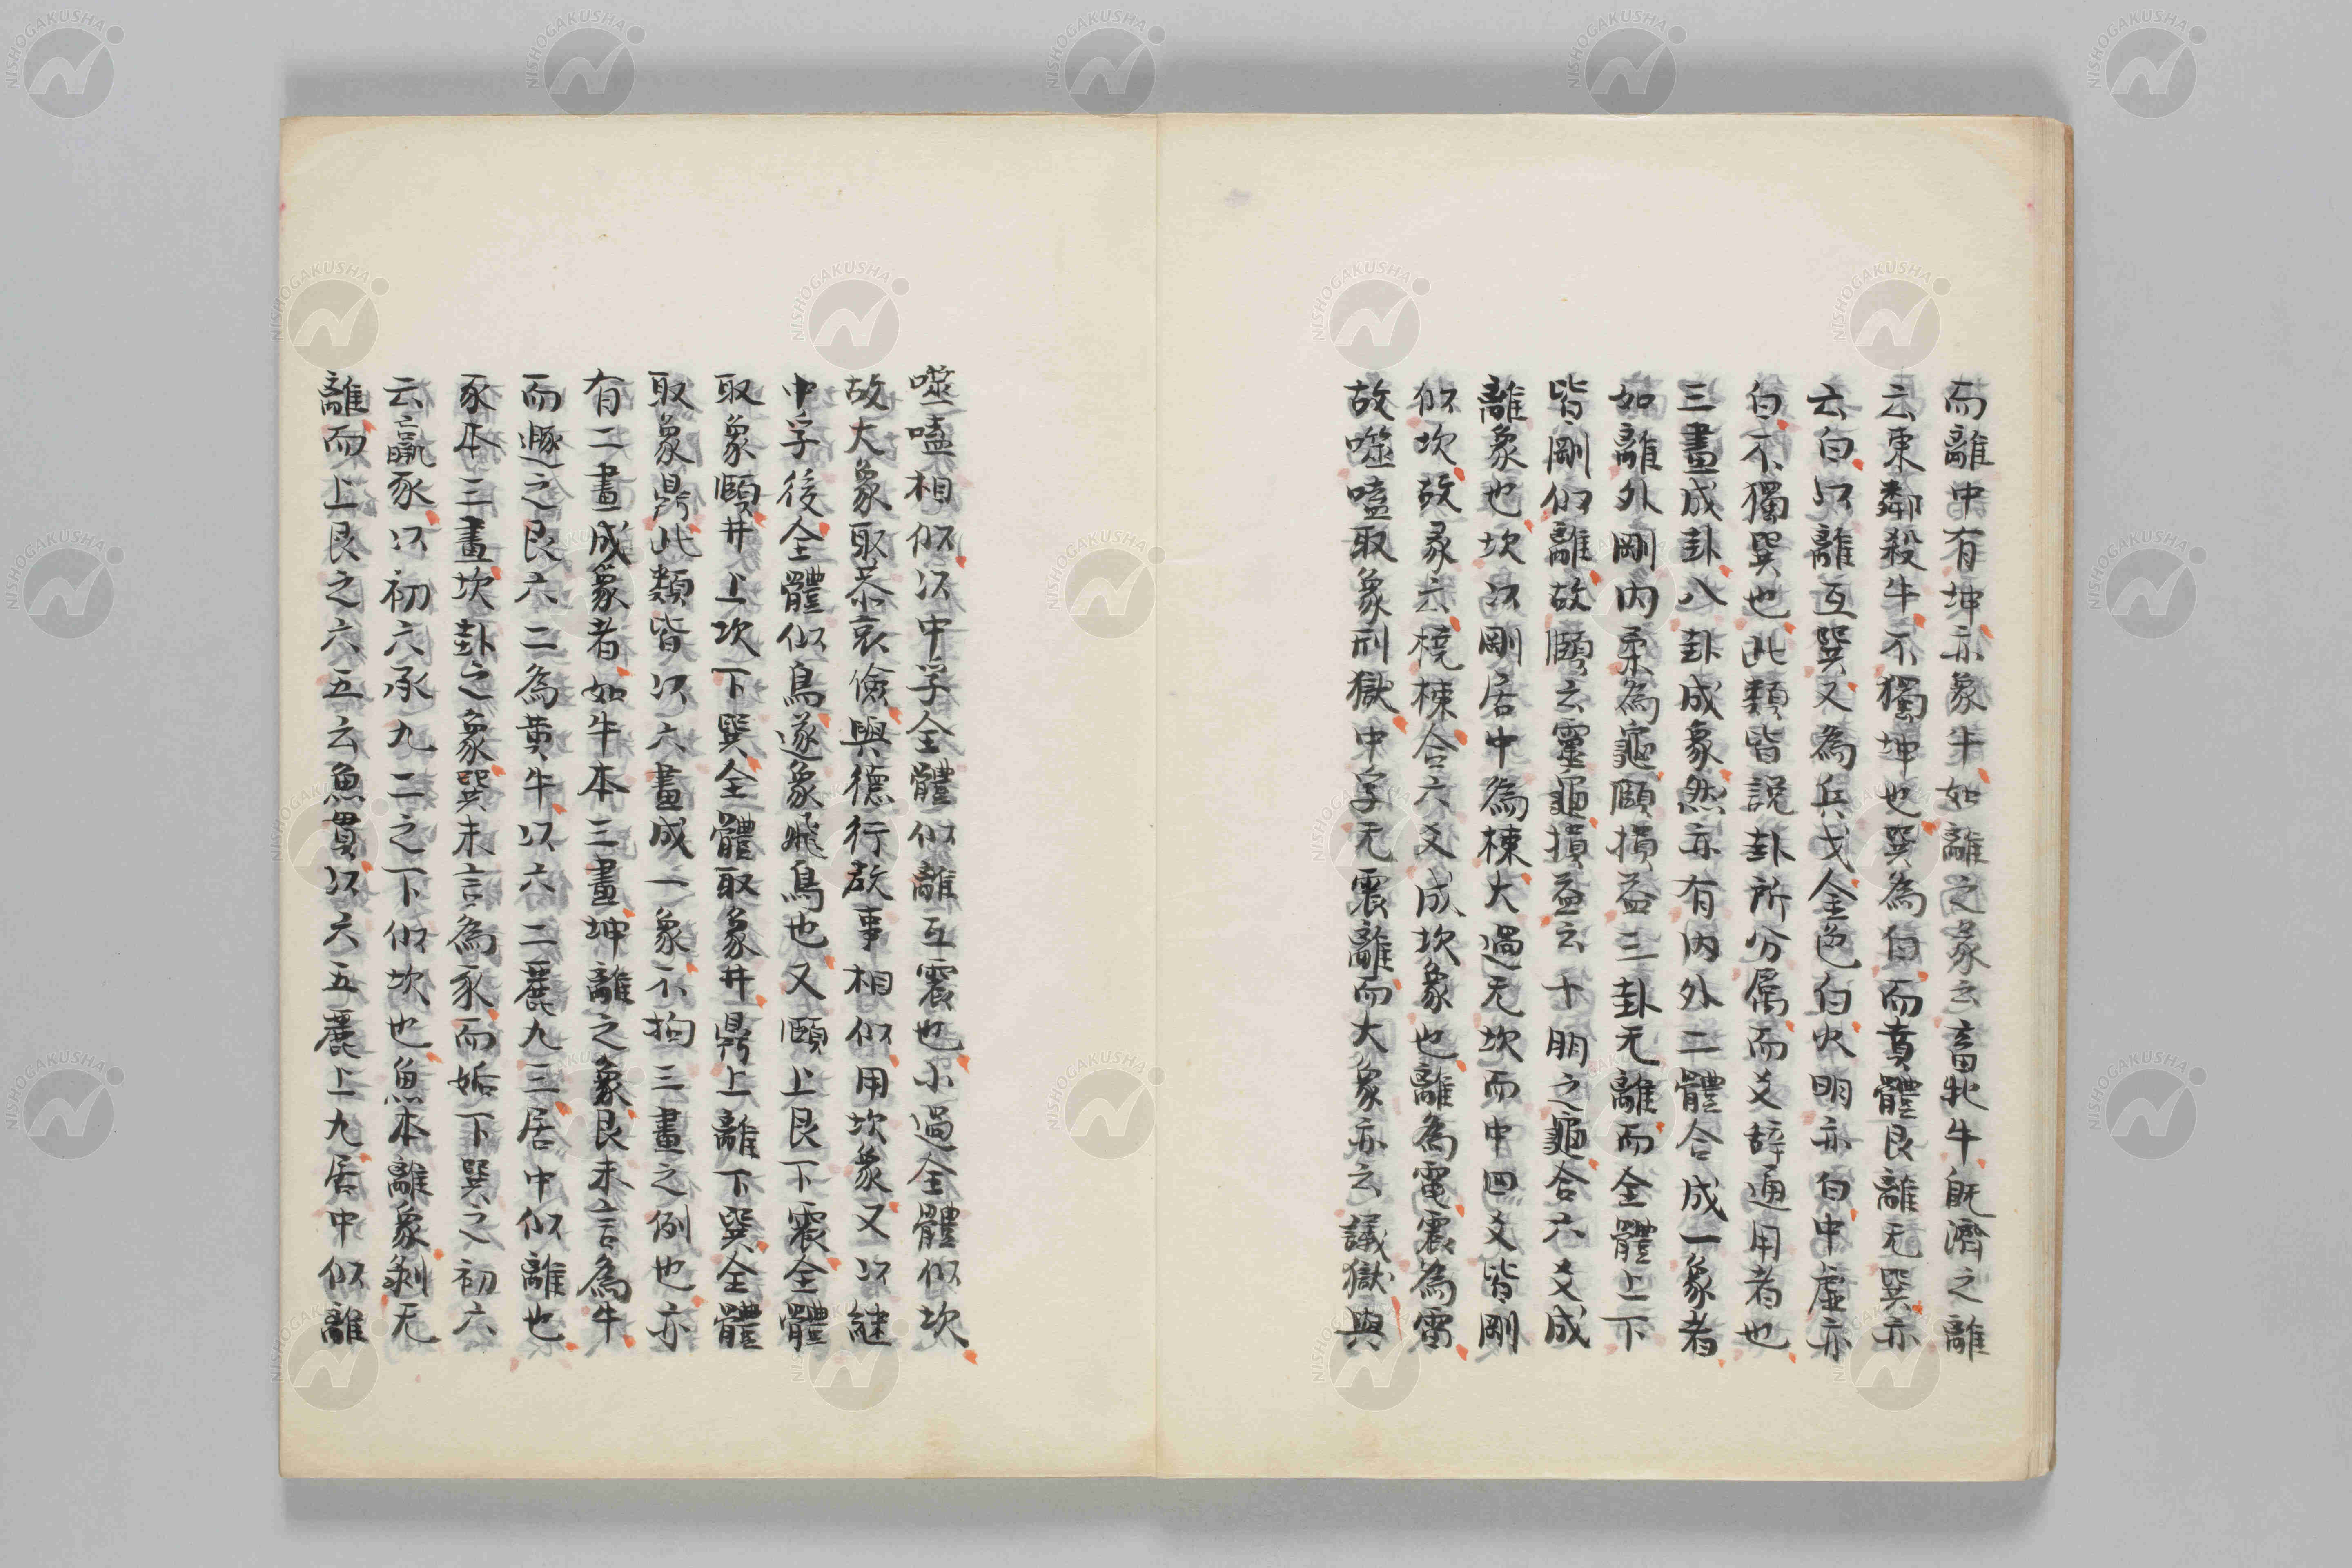 而離中有坤亦象牛如離之彖云畜牝牛既濟之離
云東鄰殺牛不獨坤也巽為白而賁體艮離无巽亦
云白以離互巽又為兵戈金色白火明亦白中虛亦
白不獨巽也此類皆說卦所分屬而爻辭通用者也
三畫成卦八卦成象然亦有內外二體合成一象者
如離外剛內柔為龜頤損益三卦无離而全體上下
皆剛似離故頤云靈龜損益云十朋之龜合六爻成
離象也坎以剛居中為棟大過无坎而中四爻皆剛
似坎故彖云橈棟合六爻成坎象也離為電震為雷
故噬嗑取象刑獄中孚无震離而大象亦云議獄與
噬嗑相似以中孚全體似離互震也小過全體似坎
故大象取恭哀儉與德行敎事相似用坎象又以繼
中孚後全體似鳥遂象飛鳥也又頤上艮下震全體
取象頤井上坎下巽全體取象井鼎上離下巽全體
取象鼎此類皆以六畫成一象不拘三畫之例也亦
有二畫成象者如牛本三畫坤離之象艮未言為牛
而遯之艮六二為黄牛以六二麗九三居中似離也
豕本三畫坎卦之象巽未言為豕而姤下巽之初六
云羸豕以初六承九二之下似坎也魚本離象剝无
離而上艮之六五云魚貫以六五麗上九居中似離